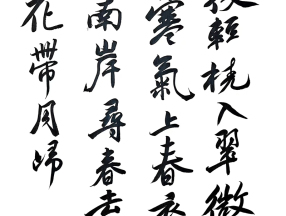 橈入翠微
寒氣上春衣
南岸尋春去
花帶月歸